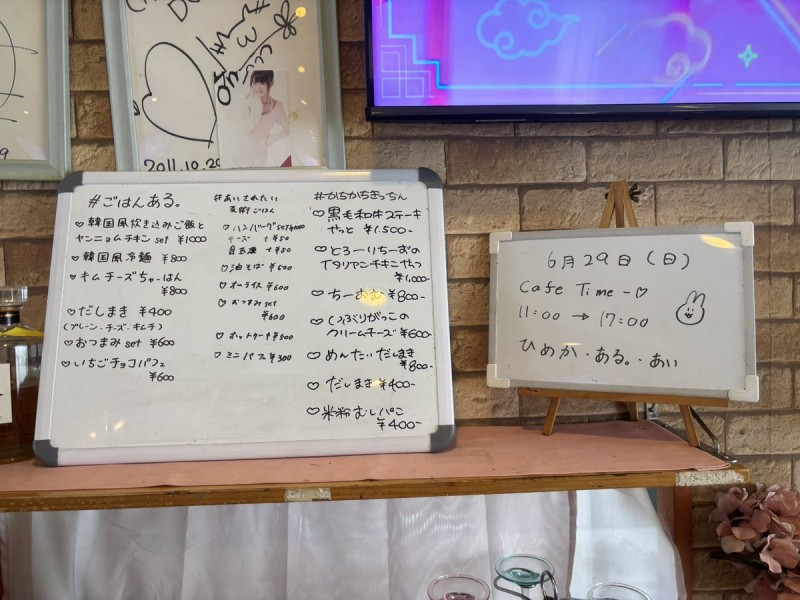 2011.10.20
#ごはんある。
♥ 韓国風炊き込みご飯と
ヤンニョムチキン set ¥1000
♥ 韓国風冷麺 ¥800
♥ キムチーズちゃーはん
¥800
♥ だしまき ¥400
(プレーン、チーズ、キムチ)
♥ おつまみ set ¥600
♥ いちごチョコパフェ
¥600
#あいされたい
ごはん
♡ ハンバーグset
チーズ +¥50
目玉焼 +¥50
♡ 油そば ¥600
♡ オムライス ¥600
♡ おつまみ set
¥600
♡ ホットケーキ ¥500
♡ ミニパフェ ¥300
#かちかちきっちん
♡ 黒毛和牛ステーキ
やっと ¥1,500-
♡ とろーりちーずの
イタリアンチキンやつ
¥1,000-
♡ ちーおむ ¥800-
♡ いぶりがっこの
クリームチーズ ¥600-
♡ めんたいだしまき
¥800-
♡ だしまき ¥400-
♡ 米粉むしパン
¥400-
6月29日(日)
Cafe Time -♡
11:00 → 17:00
ひめか・ある。・あい